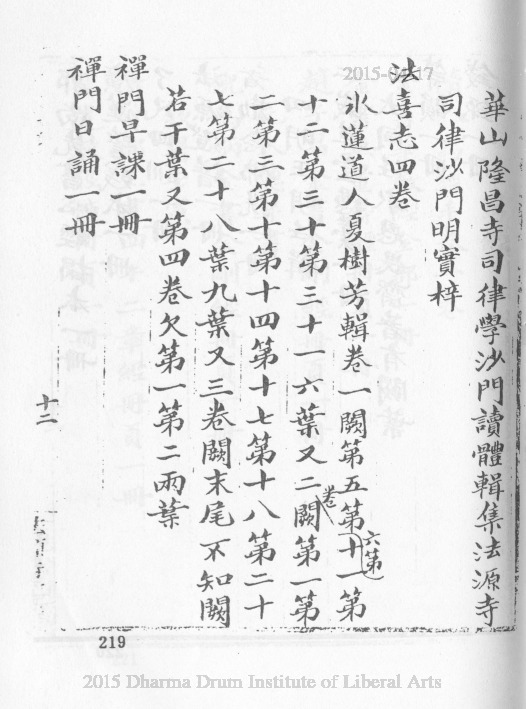 華山隆昌寺司律學沙門讀體輯集法源寺
司律沙門明實梓
法喜志四卷
氷蓮道人夏樹芳輯卷一闕第五第六第十一第
十二第三十第三十一六葉又二卷闕第一第
二第三第十第十四第十七第十八第二十
七第二十八葉九葉又三卷闕末尾不知闕
若干葉又第四卷欠第一第二兩葉
禪門早課一冊
禪門日誦一冊
十二
219
2015 Dharma Drum Institute of Liberal Arts